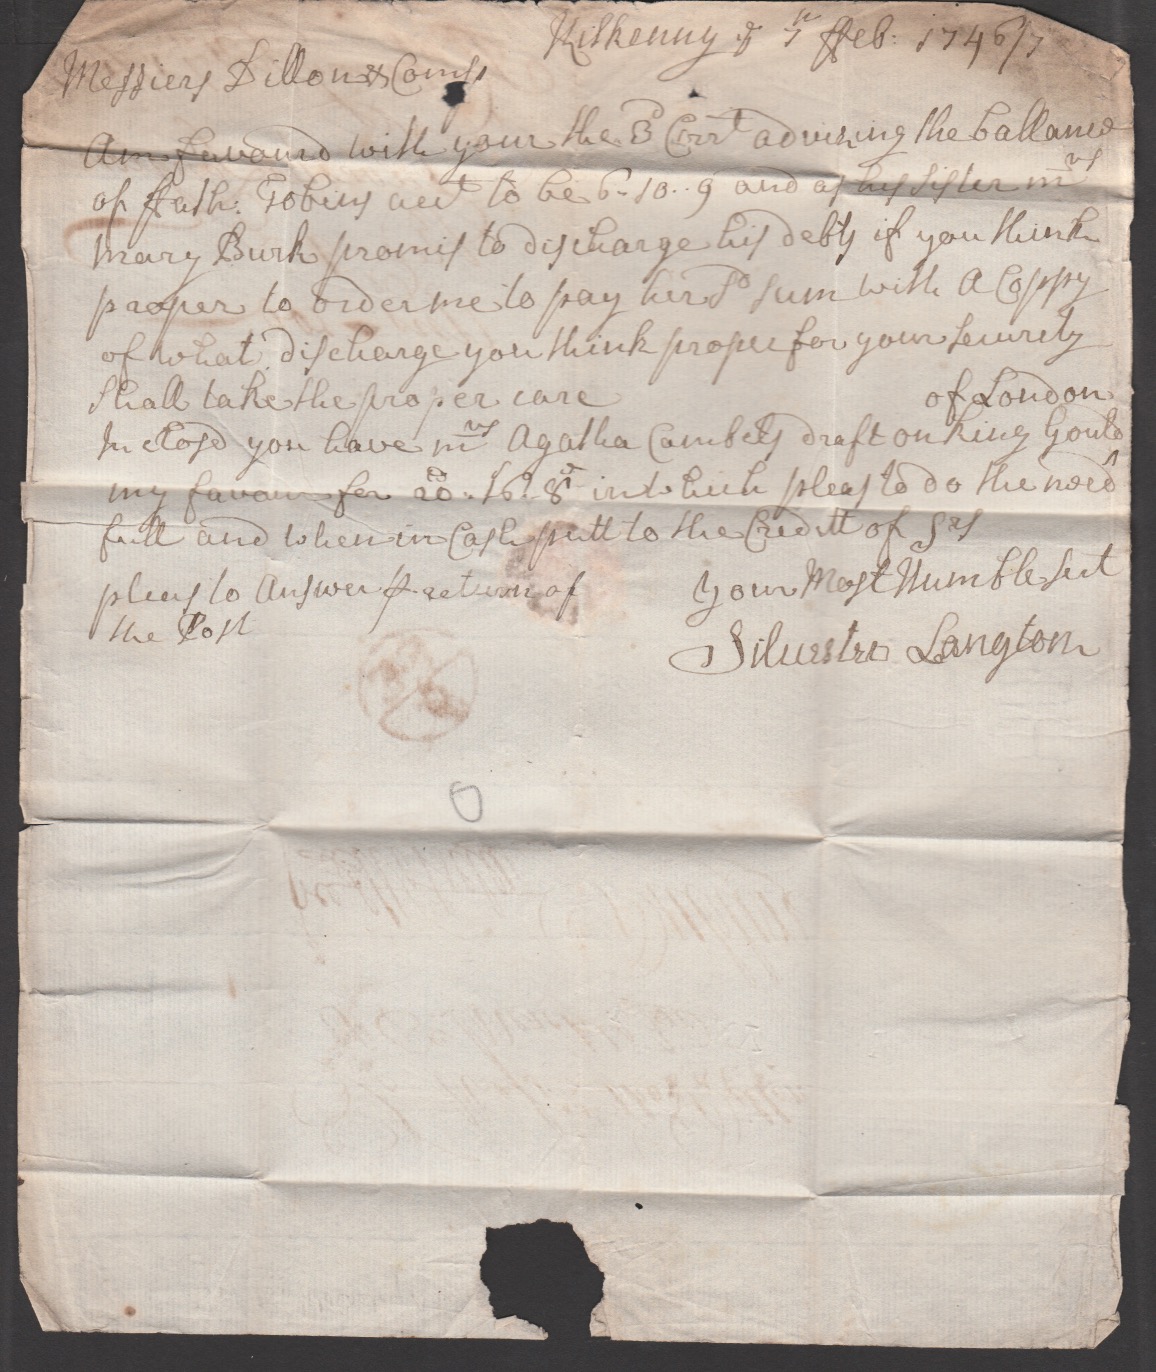 Kilkenny ye 7 ffeb: 1746/7
Messiers Dillon & Comp
Am favourd with your the 3d Corrt advising the ballance
of ffath: Tobins acct to be 6-10..9 and as his sister mrs
Mary Burk promis to discharge his debts if you think
proper to order me to pay her sd sum with A Coppy
of what discharge you think proper for your security
shall take the proper care
of London
Inclosd you have mrs Agatha draft on King Gould
my favour for 20..16..8 in which pleas to do the need
full and when in Cash putt to the Creditt of Srs
pleas to Answer pr return of
the Post
Your Most Humble Sert
Silvester Langton